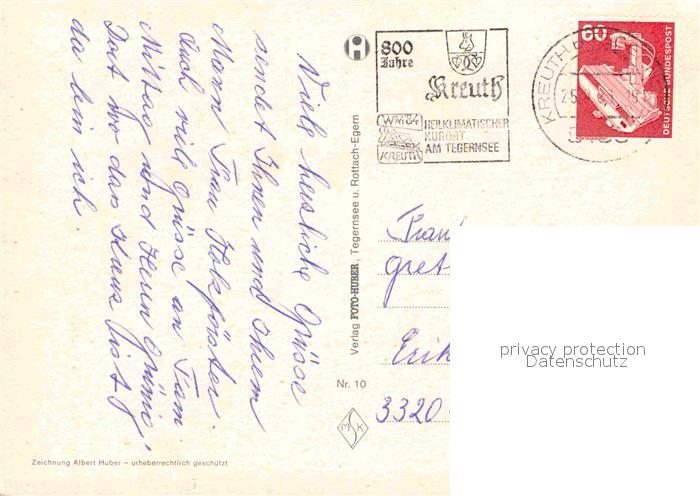 Viele herzliche Grüsse
sendet Ihnen und Ihrem
Mann Frau Holzförster.
Auch viele Grüsse an Fam.
Mittag und Herrn
Dort wo das Kreuz ist
da bin ich.
800
Jahre
Kreuth
WM 84
KREUTH
HEILKLIMATISCHER
KURORT
AM TEGERNSEE
KREUTH
60
DEUTSCHE BUNDESPOST
Verlag FOTO-HUBER, Tegernsee u. Rottach-Egern
Nr. 10
Frau
gret
Erik
3320
privacy protection
Datenschutz
Zeichnung Albert Huber – urheberrechtlich geschützt